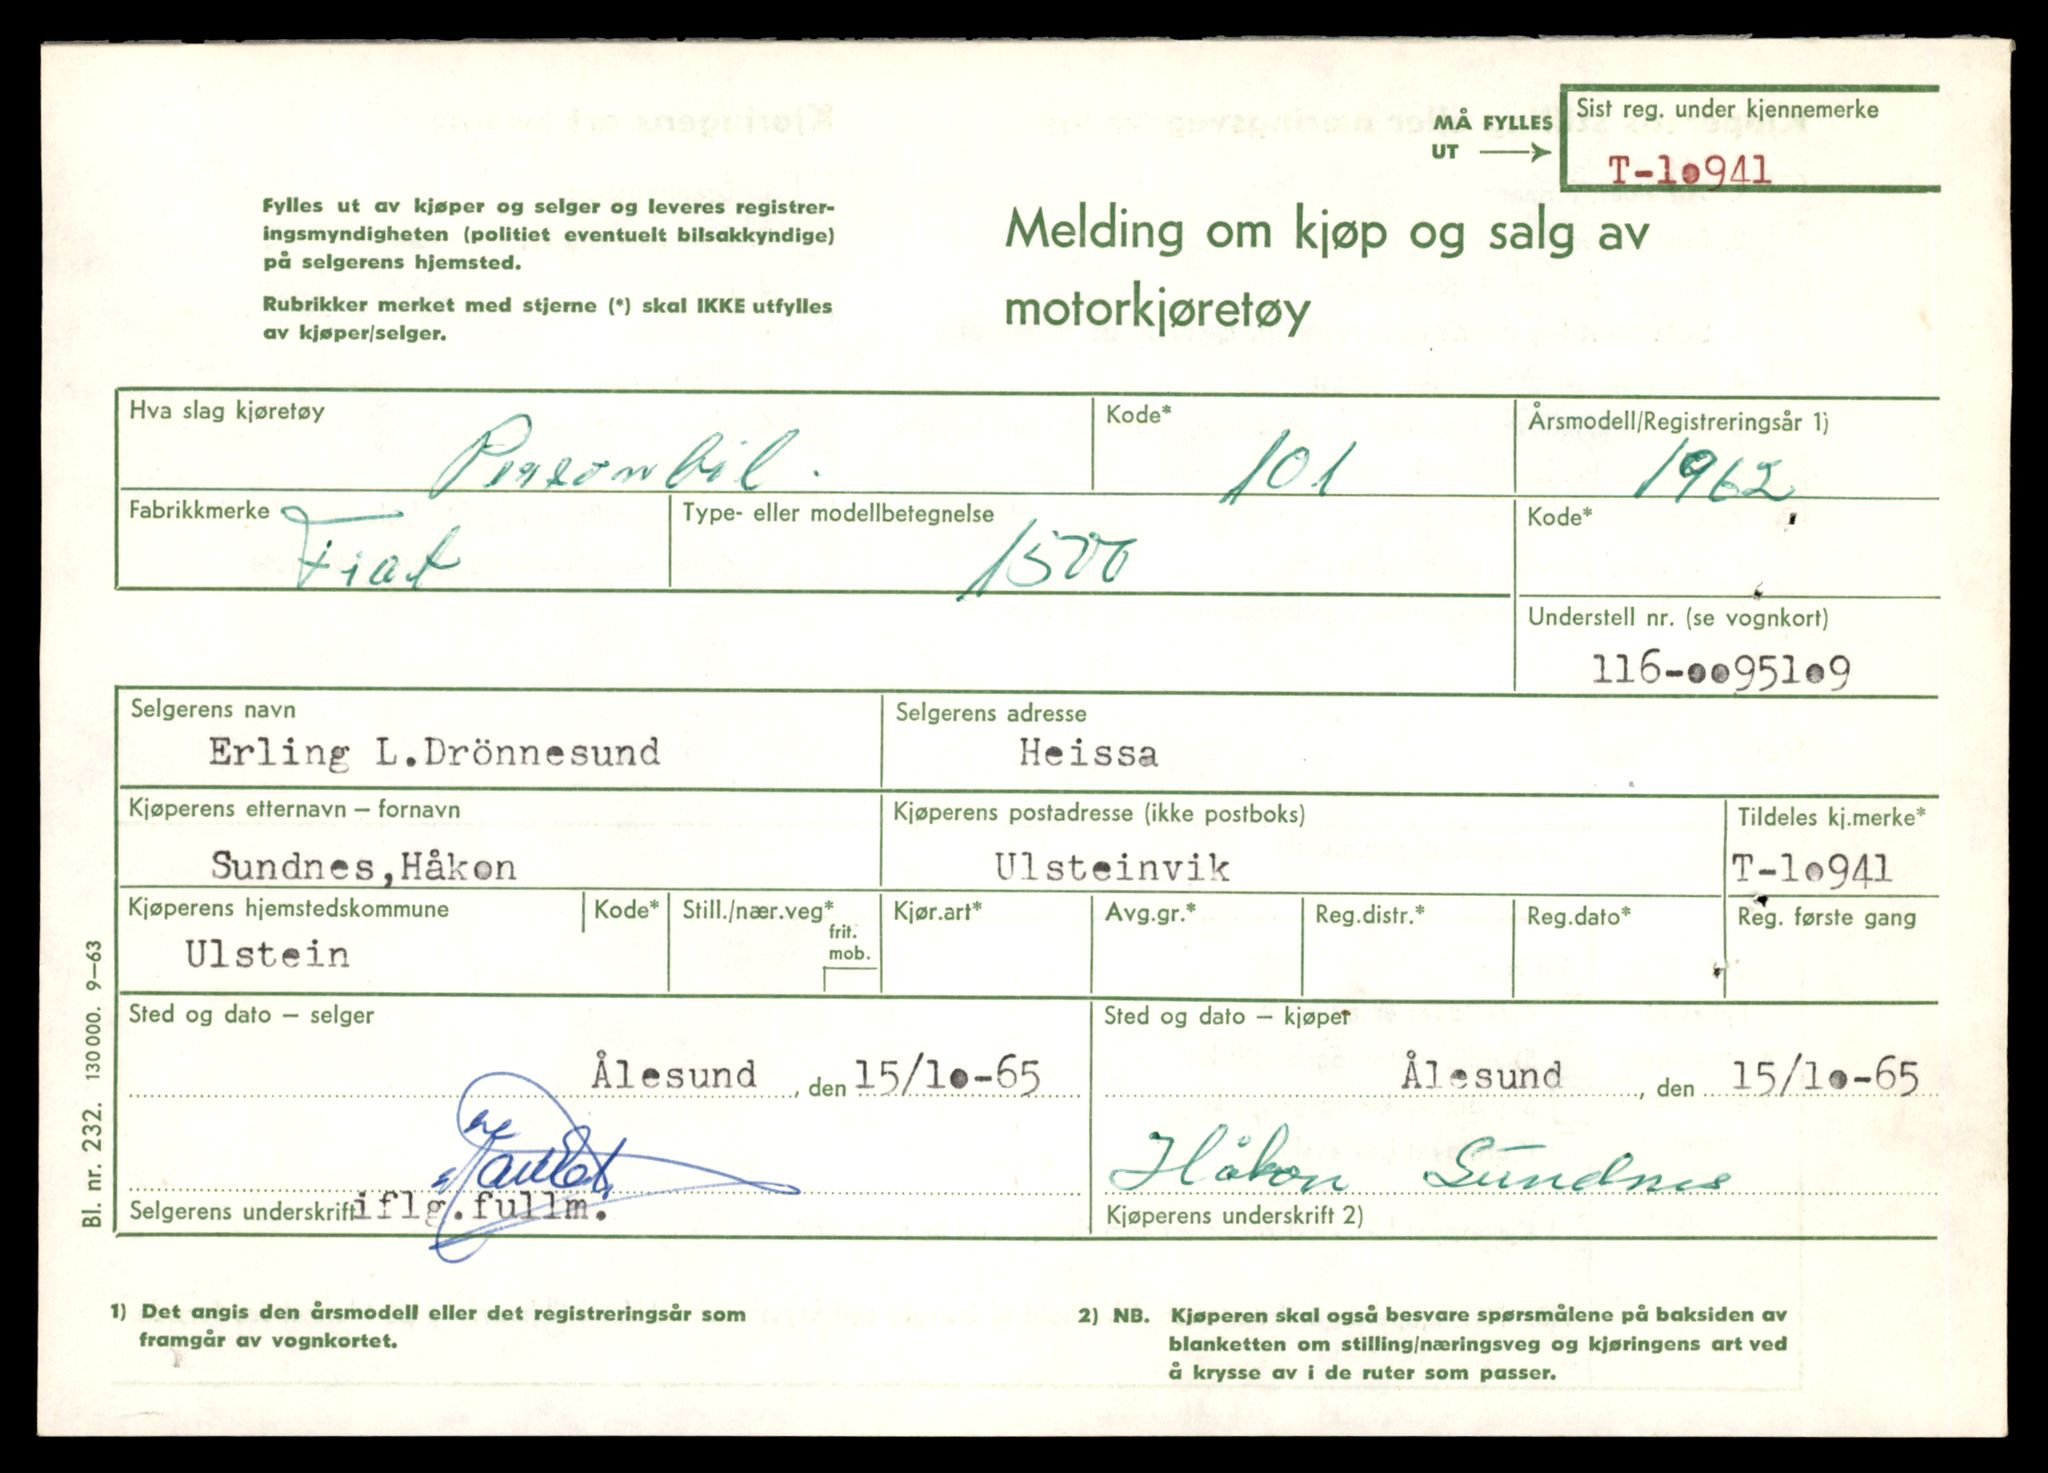 MÅ FYLLES
UT
Sist reg. under kjennemerke
T-10941
Fylles ut av kjøper og selger og leveres registrer-
ingsmyndigheten (politiet eventuelt bilsakkyndige)
på selgerens hjemsted.
Rubrikker merket med stjerne (*) skal IKKE utfylles
av kjøper/selger.
Melding om kjøp og salg av
motorkjøretøy
Hva slag kjøretøy
Personbil.
Kode*
101
Årsmodell/Registreringsår 1)
1962
Fabrikkmerke
Fiat
Type- eller modellbetegnelse
1500
Kode*
Understell nr. (se vognkort)
116-0095109
Selgerens navn
Erling L.Drönnesund
Selgerens adresse
Heissa
Kjøperens etternavn – fornavn
Sundnes,Håkon
Kjøperens postadresse (ikke postboks)
Ulsteinvik
Tildeles kj.merke*
T-10941
Kjøperens hjemstedskommune
Ulstein
Kode*
Still./nær.veg*
frit.
mob.
Kjør.art*
Avg.gr.*
Reg.distr.*
Reg.dato*
Reg. første gang
Sted og dato – selger
Ålesund, den 15/10-65
Sted og dato – kjøper
Ålesund, den 15/10-65
Håkon Sundnes
Selgerens underskrift iflg.fullm.
Kjøperens underskrift 2)
Bl. nr. 232. 130 000. 9–63
1) Det angis den årsmodell eller det registreringsår som
framgår av vognkortet.
2) NB. Kjøperen skal også besvare spørsmålene på baksiden av
blanketten om stilling/næringsveg og kjøringens art ved
å krysse av i de ruter som passer.